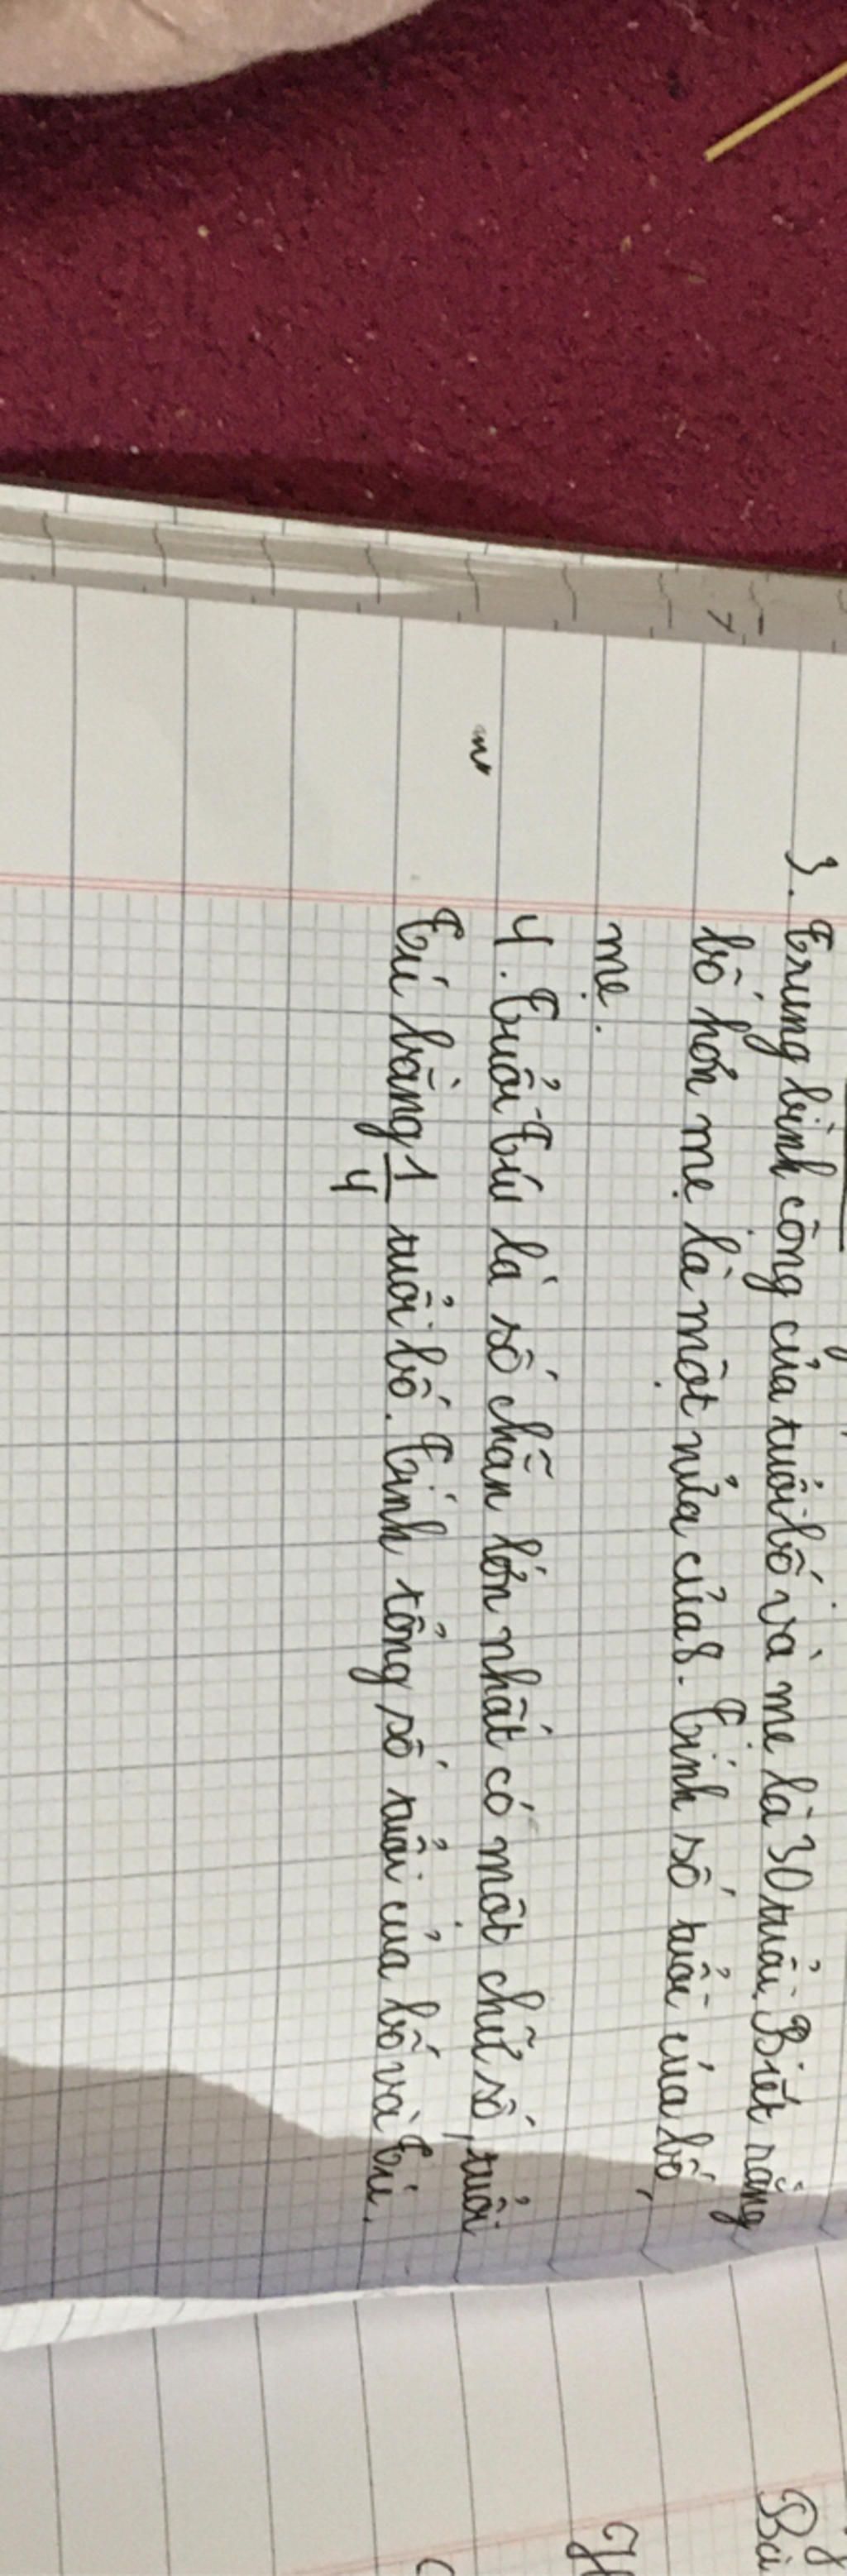 3. Trung bình cộng của tuổi bố và mẹ là 30 tuổi. Biết rằng
bố hơn mẹ là một nửa của 8. Tính số tuổi của bố,
mẹ.
4. Tuổi Tú là số chẵn lớn nhất có một chữ số, tuổi
Tú bằng 1/4 tuổi bố. Tính tổng số tuổi của bố và Tú.